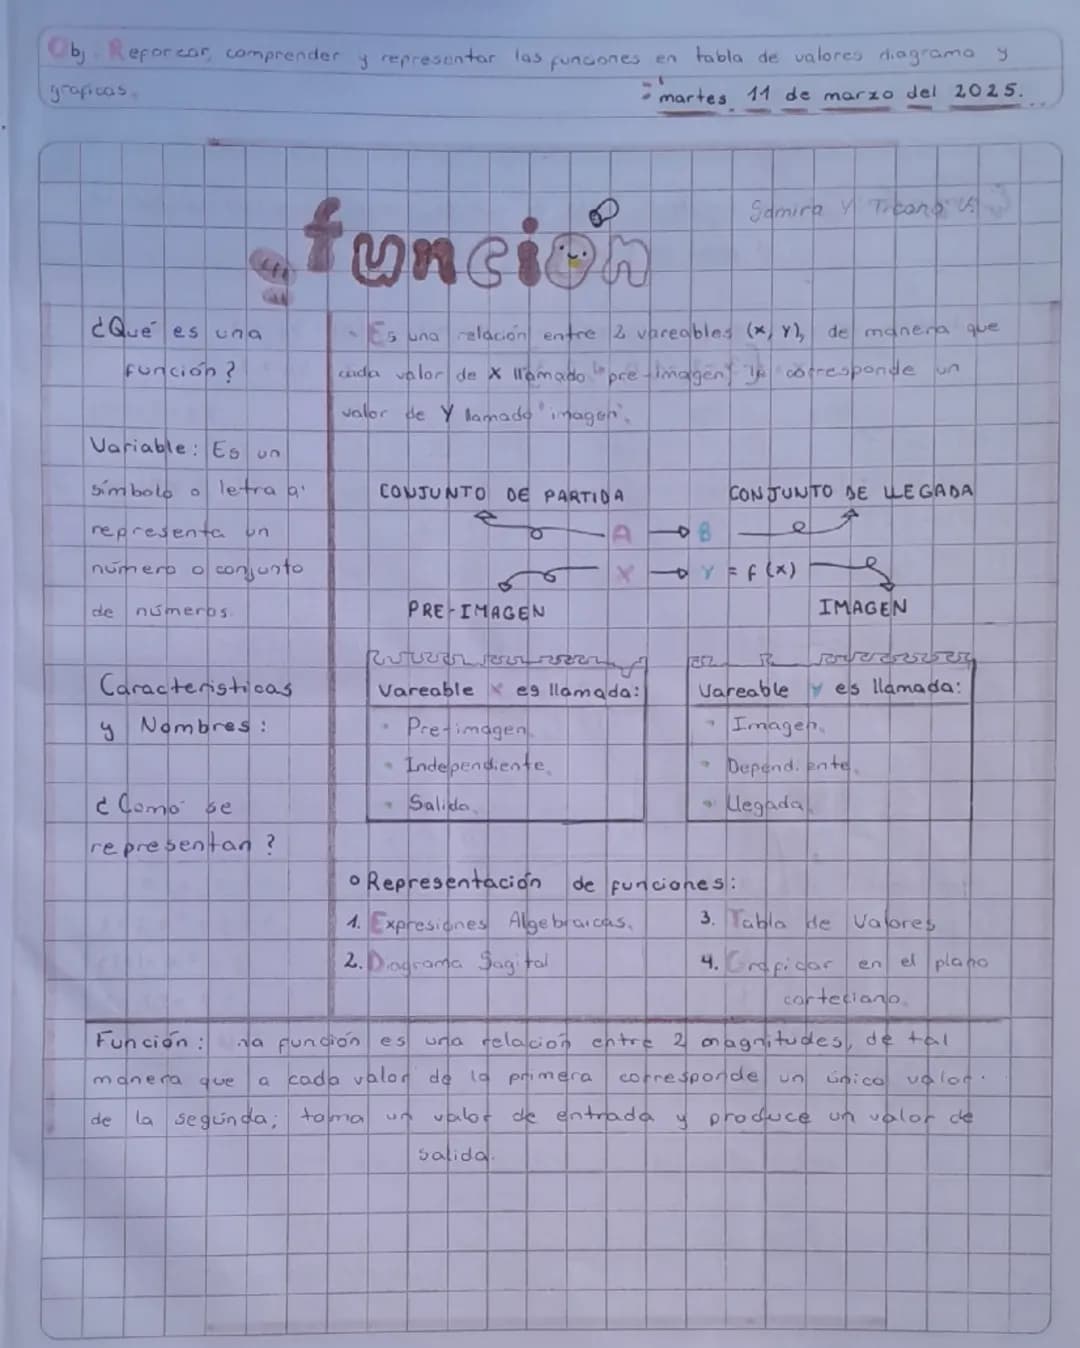 Obj. Reforzar, comprender y representar las funciones en tabla de valores diagrama y
graficas.
martes, 11 de marzo del 2025.
Samira Y
función
¿Qué es una
función?
Es una relación entre 2 vareables (x, Y), de manera que
cada valor de X llamado "pre-imagen" le corresponde un
valor de Y llamado "imagen".
Variable: Es un
símbolo o letra q'
representa un
número o conjunto
de números.
CONJUNTO DE PARTIDA
CONJUNTO DE LLEGADA
A → B
X → Y = f (x)
PRE-IMAGEN
IMAGEN
Caracteristicas
y Nombres:
Vareable x es llamada:
Pre-imagen.
Independiente.
Salida.
Vareable y es llamada:
Imagen.
Dependiente.
Llegada.
¿Como se
representan?
Representación de funciones:
1. Expresiones Algebraicas.
2. Diagrama Sagital
3. Tabla de Valores
4. Graficar en el plano
carteciano.
Función: na función es una relación entre 2 magnitudes, de tal
manera que a cada valor de la primera corresponde un único valor.
de la segunda; toma un valor de entrada y produce un valor de
salida.